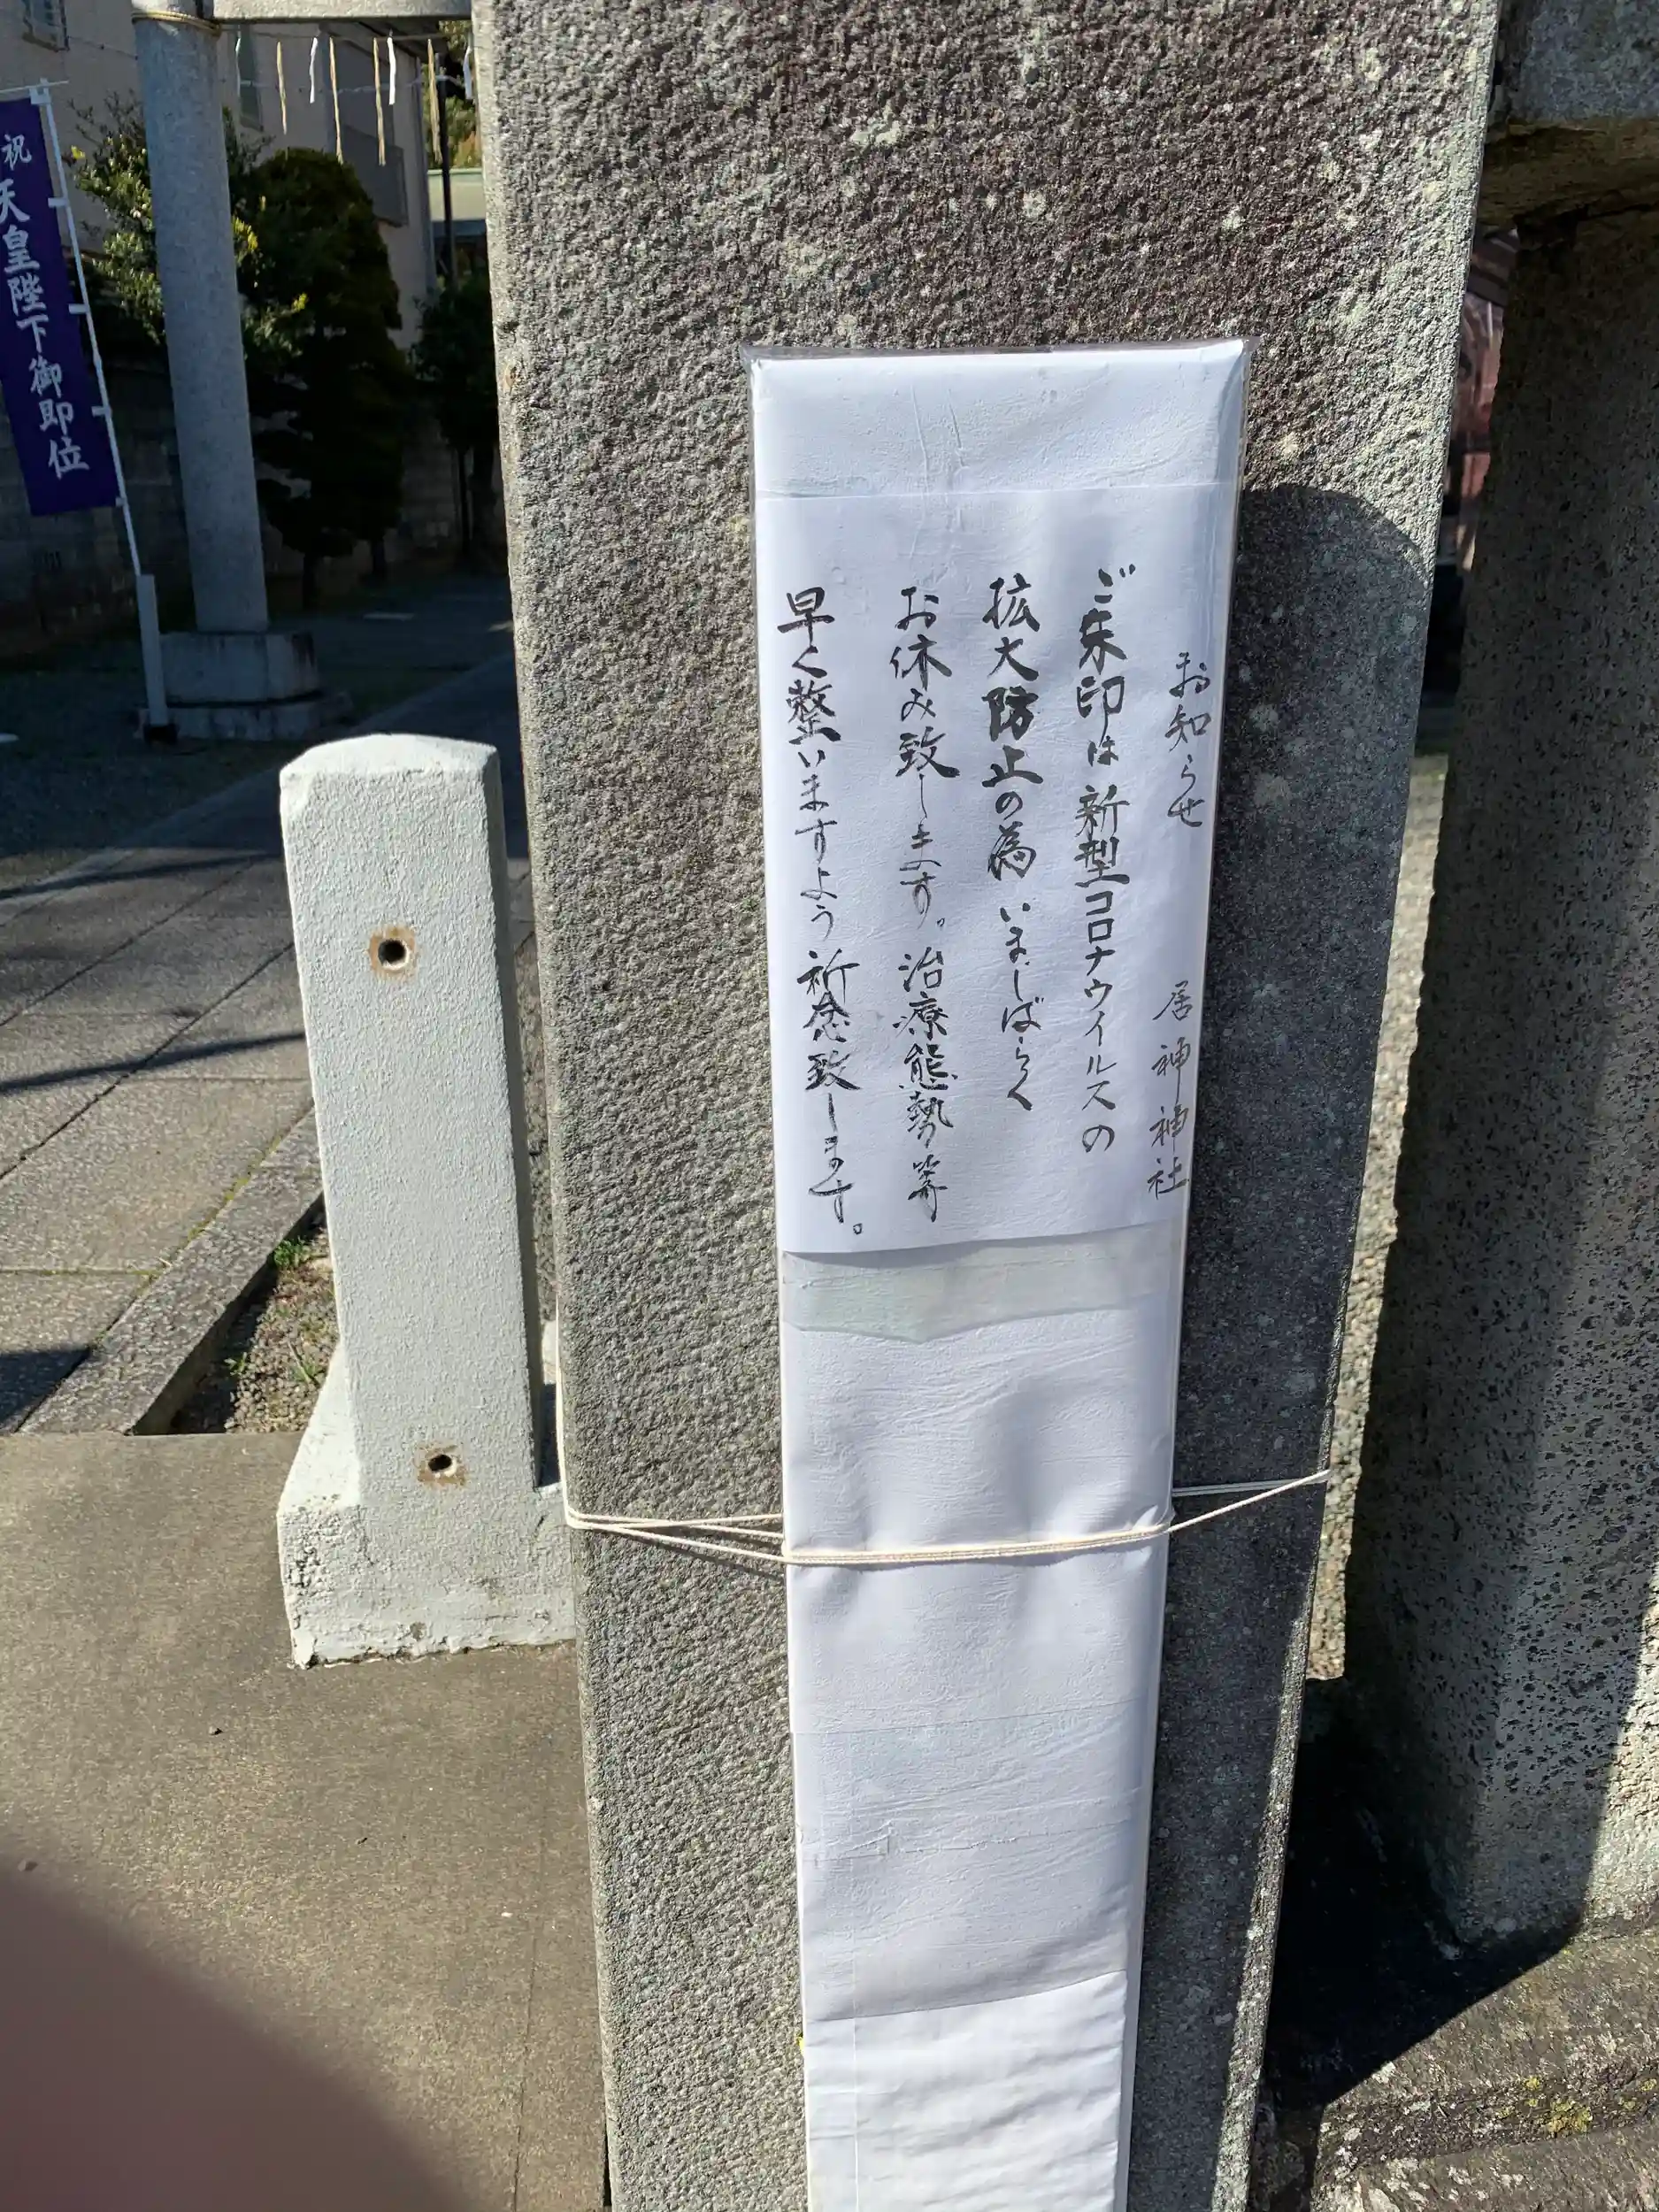 お知らせ 居神神社
ご朱印は新型コロナウイルスの
拡大防止の為いましばらく
お休み致します。治療態勢等
早く整いますよう祈念致します。
祝天皇陛下御即位